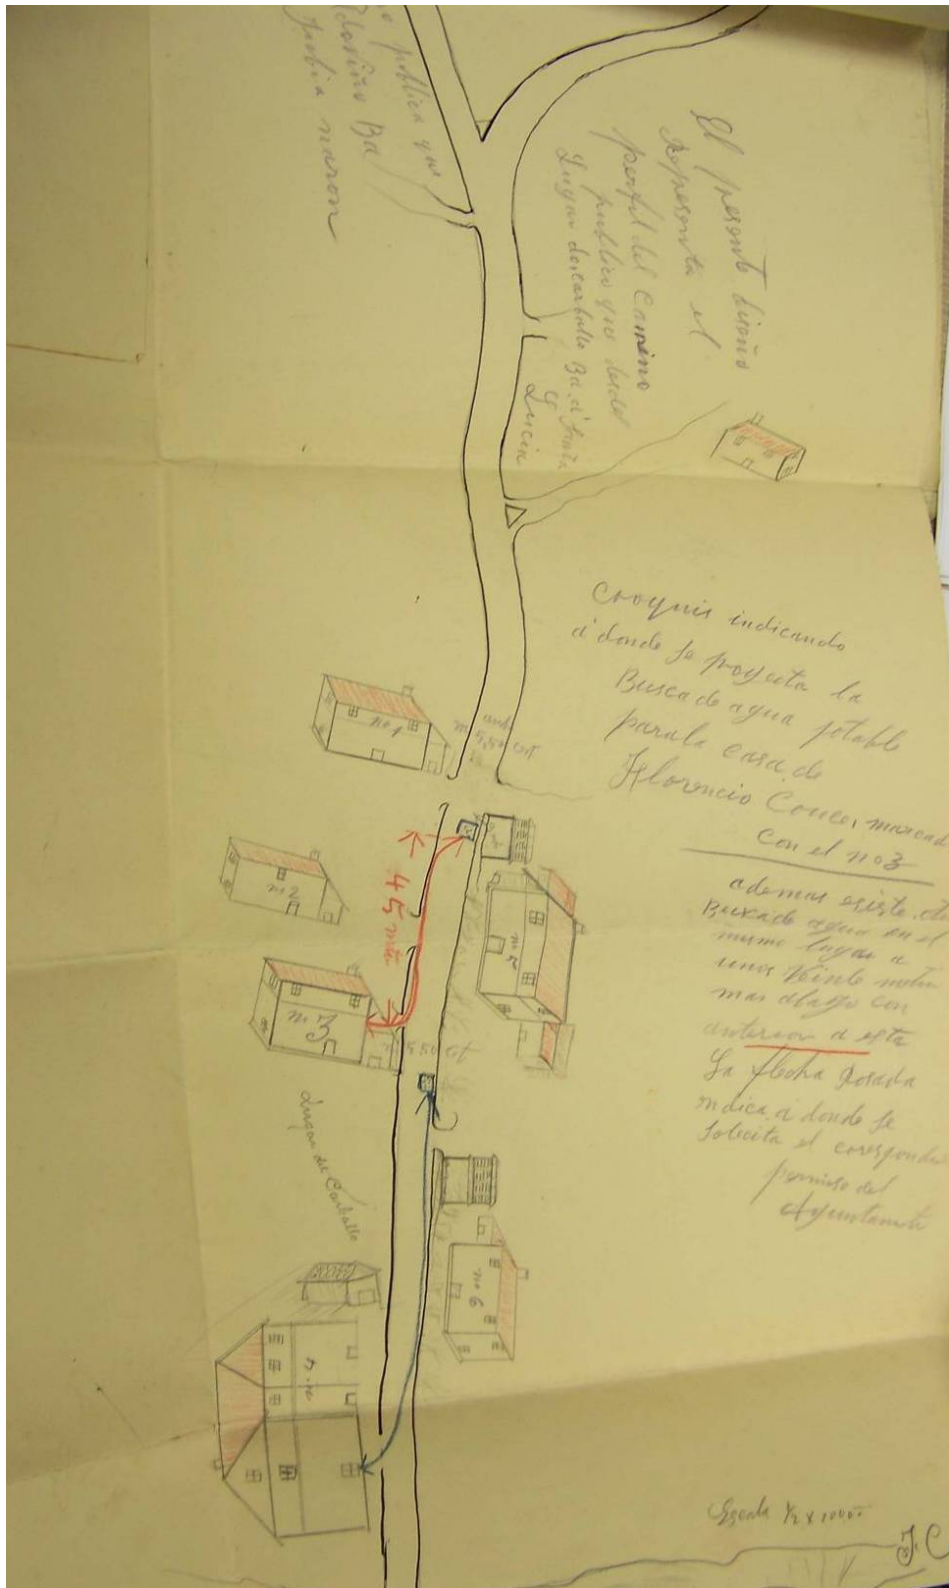 El presente diseño
Representa el
perfil del Camino
publico que desdel
Lugar do carballo Ba. d' Santa
Lucia
publica que
Ba
Jubia naron
Croquis indicando
a donde se proyecta la
Busca de agua potable
para la casa de
Florencio Couce, marcad
con el nº 3
ademas existe
Buscade agua en el
mismo lugar a
unos Veinte metros
mas abajo con
anterior a esta
La flecha Rosada
indica a donde se
solecita el correspondi
permiso del
Ayuntamient
nº 1
nº 2
45 mts
nº 3
nº 5
Lugar del Carballo
nº 6
nº 4
Escala 1/2 x 1000
F.C